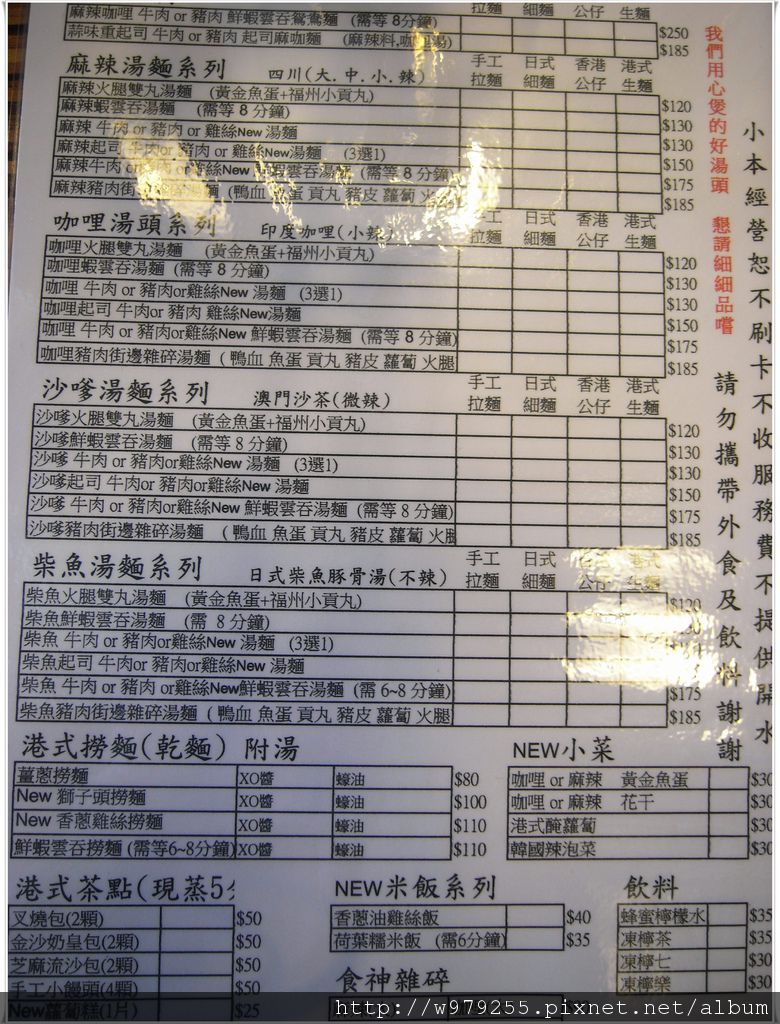 麻辣咖哩 牛肉 or 豬肉 鮮蝦雲吞鴛鴦麵 (需等 8分鐘) $250
蒜味重起司 牛肉 or 豬肉 起司麻咖麵 (麻辣料,咖哩湯) $185
拉麵 細麵 公仔 生麵
麻辣湯麵系列 四川(大.中.小.辣)
手工拉麵 日式細麵 香港公仔 港式生麵
麻辣火腿雙丸湯麵 (黃金魚蛋+福州小貢丸) $120
麻辣蝦雲吞湯麵 (需等 8 分鐘) $130
麻辣 牛肉 or 豬肉 or 雞絲New 湯麵 $130
麻辣起司 牛肉or 豬肉 or 雞絲New湯麵 (3選1) $150
麻辣牛肉 or 豬肉 or雞絲New鮮蝦雲吞湯麵 (需等 8 分鐘) $175
麻辣豬肉街邊雜碎湯麵 (鴨血 魚蛋 貢丸 豬皮 蘿蔔 火 $185
咖哩湯頭系列 印度咖哩(小辣)
手工拉麵 日式細麵 香港公仔 港式生麵
咖哩火腿雙丸湯麵 (黃金魚蛋+福州小貢丸) $120
咖哩蝦雲吞湯麵 (需等 8 分鐘) $130
咖哩 牛肉 or 豬肉or雞絲New 湯麵 (3選1) $130
咖哩起司 牛肉or 豬肉 雞絲New湯麵 $150
咖哩 牛肉 or 豬肉or雞絲New 鮮蝦雲吞湯麵 (需等 8 分鐘) $175
咖哩豬肉街邊雜碎湯麵 ( 鴨血 魚蛋 貢丸 豬皮 蘿蔔 火腿 $185
沙嗲湯麵系列 澳門沙茶(微辣)
手工拉麵 日式細麵 香港公仔 港式生麵
沙嗲火腿雙丸湯麵 (黃金魚蛋+福州小貢丸) $120
沙嗲鮮蝦雲吞湯麵 (需等 8 分鐘) $130
沙嗲 牛肉 or 豬肉or雞絲New 湯麵 (3選1) $130
沙嗲起司 牛肉 or 豬肉or雞絲New 湯麵 $150
沙嗲 牛肉 or 豬肉or雞絲New 鮮蝦雲吞湯麵 (需等 8 分鐘) $175
沙嗲豬肉街邊雜碎湯麵 ( 鴨血 魚蛋 貢丸 豬皮 蘿蔔 火腿 $185
柴魚湯麵系列 日式柴魚豚骨湯(不辣)
手工拉麵 日式細麵 公仔 港式生麵
柴魚火腿雙丸湯麵 (黃金魚蛋+福州小貢丸) $120
柴魚鮮蝦雲吞湯麵 (需 8分鐘)
柴魚 牛肉 or 豬肉or雞絲New 湯麵 (3選1)
柴魚起司 牛肉or 豬肉or雞絲New 湯麵
柴魚 牛肉 or 豬肉 or雞絲New鮮蝦雲吞湯麵 (需 6~8 分鐘) $175
柴魚豬肉街邊雜碎湯麵 ( 鴨血 魚蛋 貢丸 豬皮 蘿蔔 火腿 $185
港式撈麵(乾麵) 附湯
薑蔥撈麵 XO醬 蠔油 $80
New 獅子頭撈麵 XO醬 蠔油 $100
New 香蔥雞絲撈麵 XO醬 蠔油 $110
鮮蝦雲吞撈麵 (需等6~8分鐘) XO醬 蠔油 $110
NEW小菜
咖哩 or 麻辣 黃金魚蛋 $30
咖哩 or 麻辣 花干 $30
港式醃蘿蔔 $30
韓國辣泡菜 $30
港式茶點(現蒸5分
叉燒包(2顆) $50
金沙奶皇包(2顆) $50
芝麻流沙包(2顆) $50
手工小饅頭(4顆) $50
New蘿蔔糕(1片) $25
NEW米飯系列
香蔥油雞絲飯 $40
荷葉糯米飯 (需6分鐘) $35
食神雜碎
飲料
蜂蜜檸檬水 $35
凍檸茶 $35
凍檸七 $30
凍檸樂 $30
我們用心煲的好湯頭 懇請細細品嚐
小本經營恕不刷卡不收服務費不提供開水
請勿攜帶外食及飲料謝謝
http://w979255.pixnet.net/album